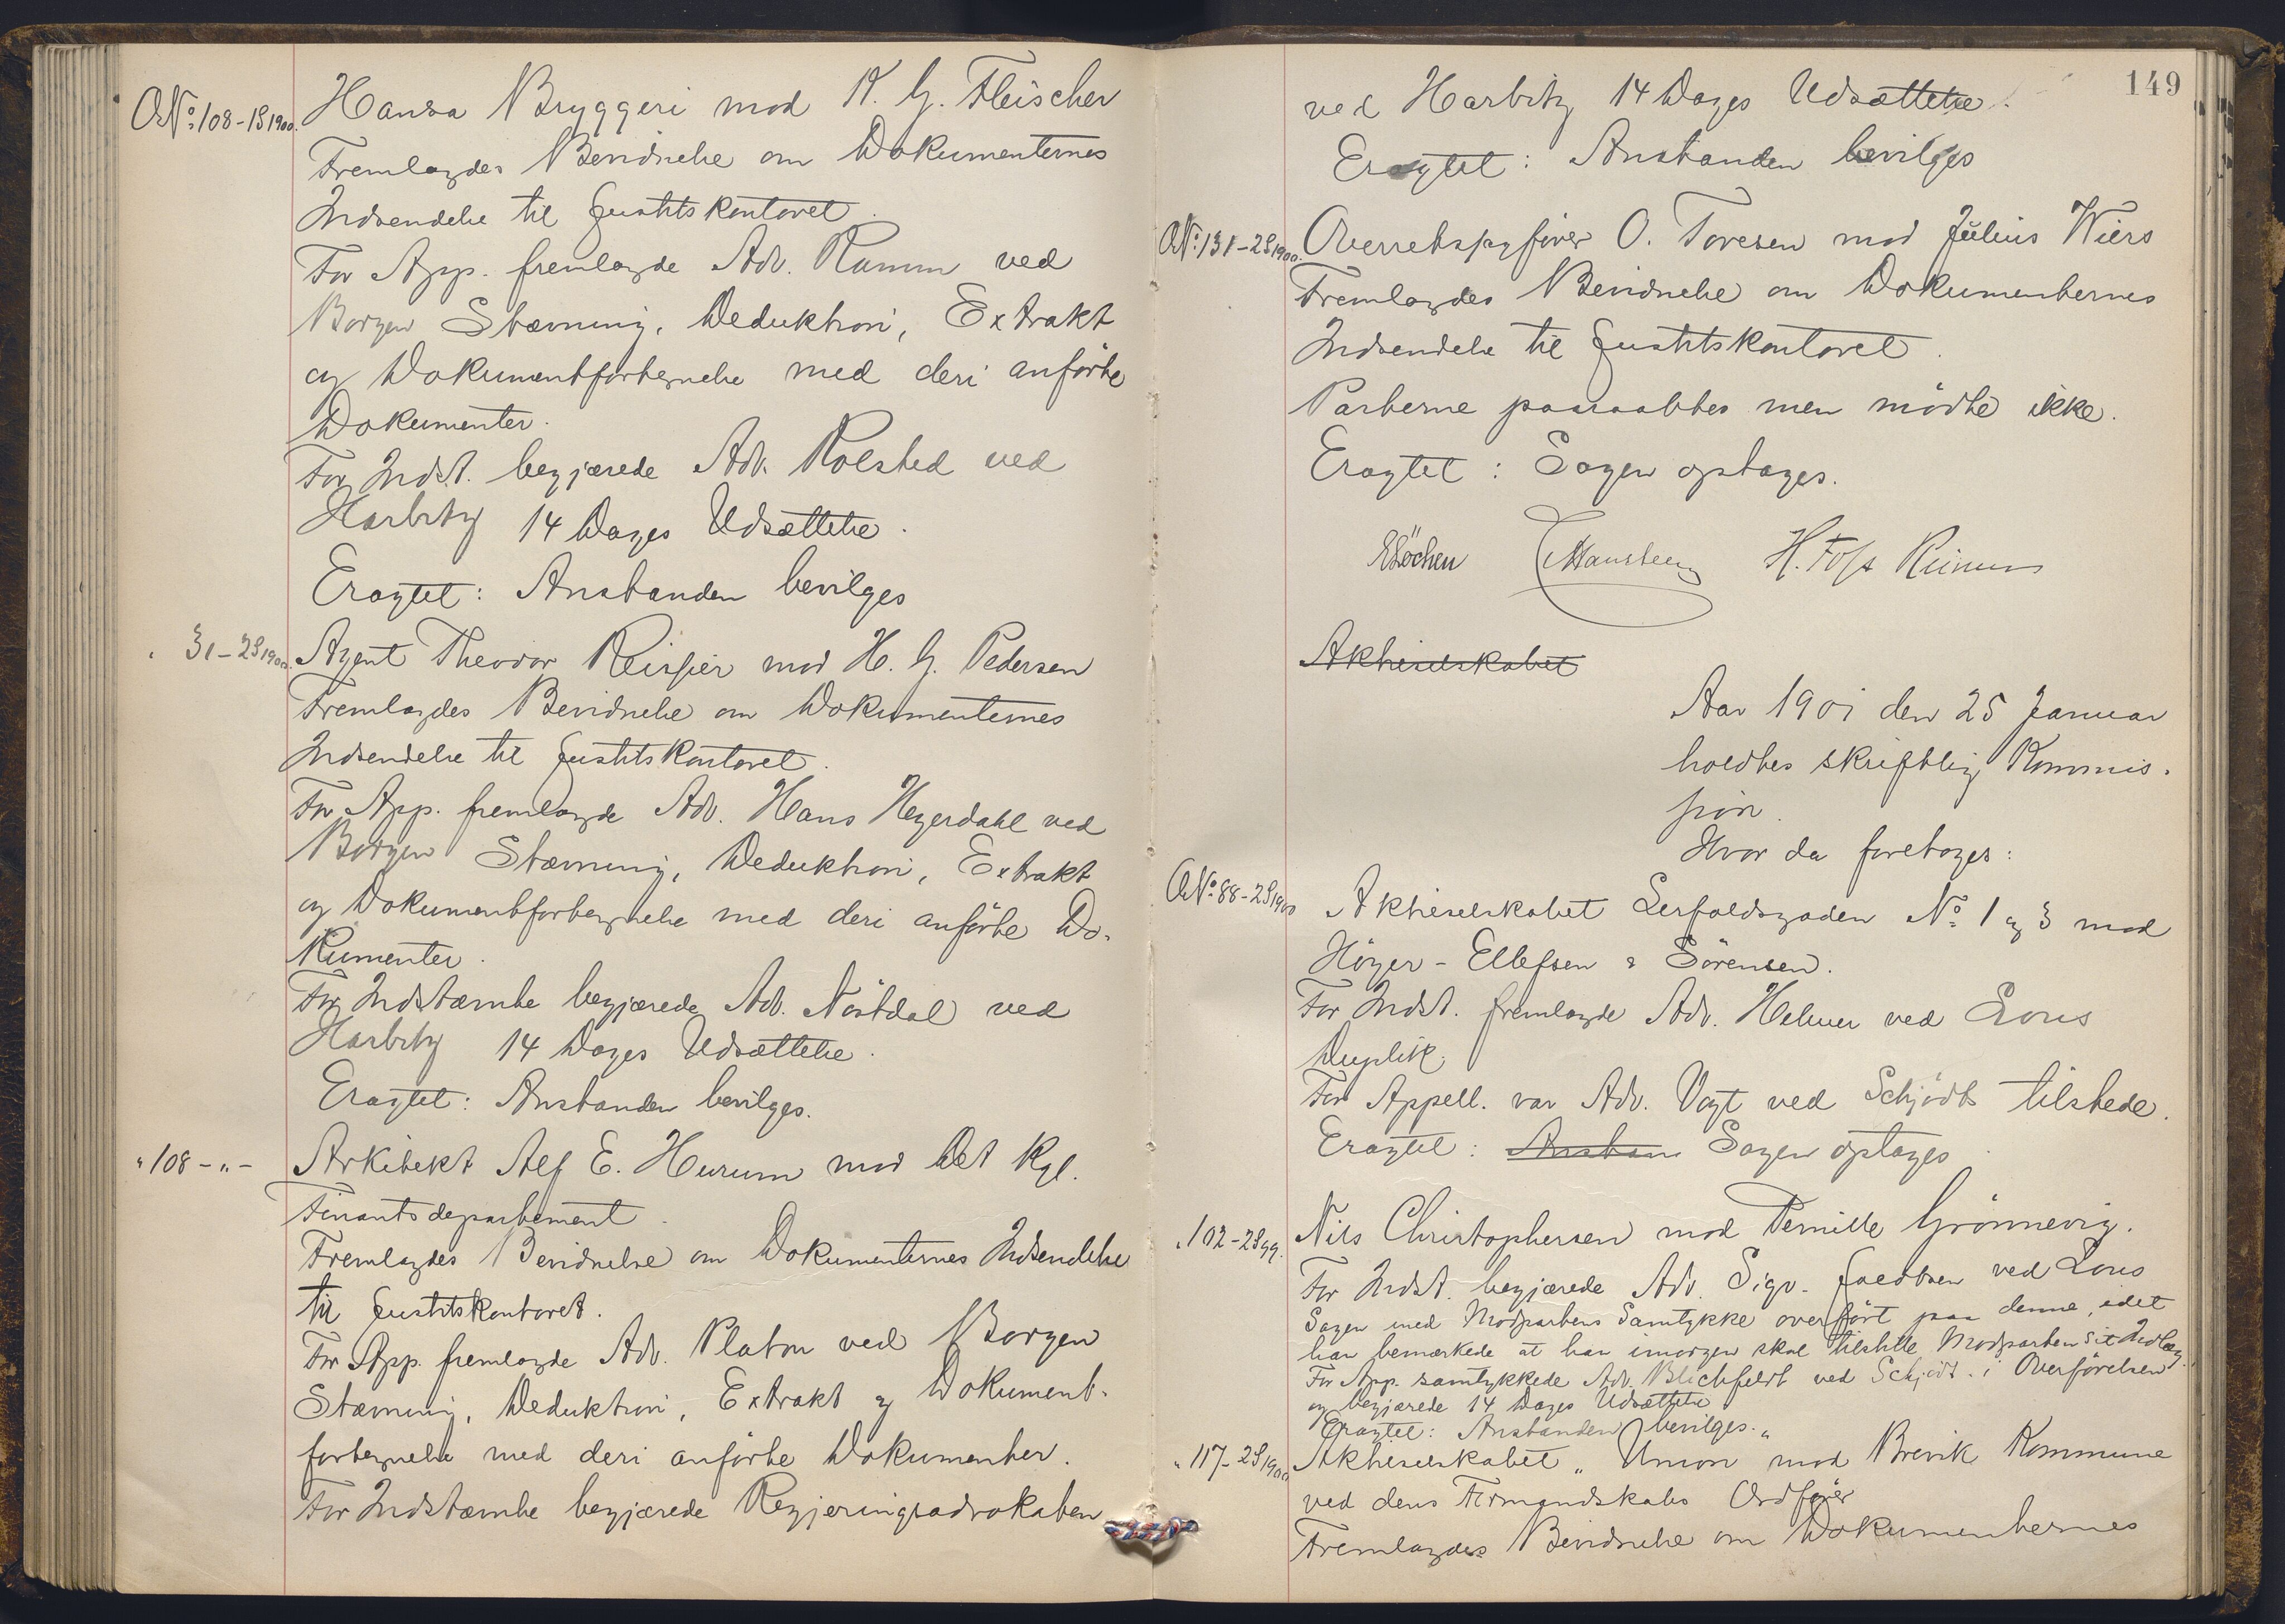 ONº 108-1S1900. Hansa Bryggeri mod K. G. Fleischer
Fremlagdes Bevidnelse om Dokumenternes
Indsendelse til Justitskontoret.
For App. fremlagde Adv. Ramm ved
Borgen Stævning, Deduktion, Extrakt
og Dokumentfortegnelse med deri anførte
Dokumenter.
For Indst. begjærede Adv. Rolsted ved
Harbitz 14 Dages Udsættelse.
Eragtet: Anstanden bevilges
" 31-2S1900. Agent Theodor mod H. G. Pedersen
Fremlagdes Bevidnelse om Dokumenternes
Indsendelse til Justitskontoret.
For App. fremlagde Adv. Hans Heyerdahl ved
Borgen Stævning, Deduktion, Extrakt
og Dokumentfortegnelse med deri anførte Do-
kumenter.
For Indstævnte begjærede Adv. Nöstdal ved
Harbitz 14 Dages Udsættelse.
Eragtet: Anstanden bevilges.
" 108-"- Arkitekt Alf E. Hurum mod Det Kgl.
Finantsdepartement.
Fremlagdes Bevidnelse om Dokumenternes Indsendelse
til Justitskontoret.
For App. fremlagde Adv. Platou ved Borgen
Stævning, Deduktion, Extrakt og Dokument-
fortegnelse med deri anførte Dokumenter.
For Indstævnte begjærede Regjeringsadvokaten
149
ved Harbitz 14 Dages Udsættelse.
Eragtet: Anstanden bevilges
ONº 131-2S1900. Overretssagfører O. Toresen mod Julius Wiers
Fremlagdes Bevidnelse om Dokumenternes
Indsendelse til Justitskontoret.
Parterne paaraabtes men mødte ikke.
Eragtet: Sagen optages.
Løchen Mansteen H. Foss Reimers
Aktieselskabet
Aar 1901 den 25 Januar
holdtes skriftlig Kommis-
sion.
Hvor da foretoges:
ONº 88-2S1900 Aktieselskabet Lerfaldsgaden Nº 1 og 3 mod
Höyer-Ellefsen & Sörensen.
For Indst. fremlagde Adv. Helmer ved Lous
Duplik.
For Appell. var Adv. Vogt ved Schjödt tilstede.
Eragtet: Anstan Sagen optages.
" 102-2S99. Nils Christophersen mod Pernille Grönnevig.
For Indst. begjærede Adv. Sigv. ved Lous
Sagen med Modpartens Samtykke overført paa denne, idet
han bemærkede at han imorgen skal tilstille Modparten sit Indlæg.
For App. samtykkede Adv. Blichfeldt ved Schjödt i Overførelsen
og begjærede 14 Dages Udsættelse
Eragtet: Anstanden bevilges.
" 117-2S1900 Aktieselskabet "Union" mod Brevik Kommune
ved dens Formandskabs Ordfører
Fremlagdes Bevidnelse om Dokumenternes